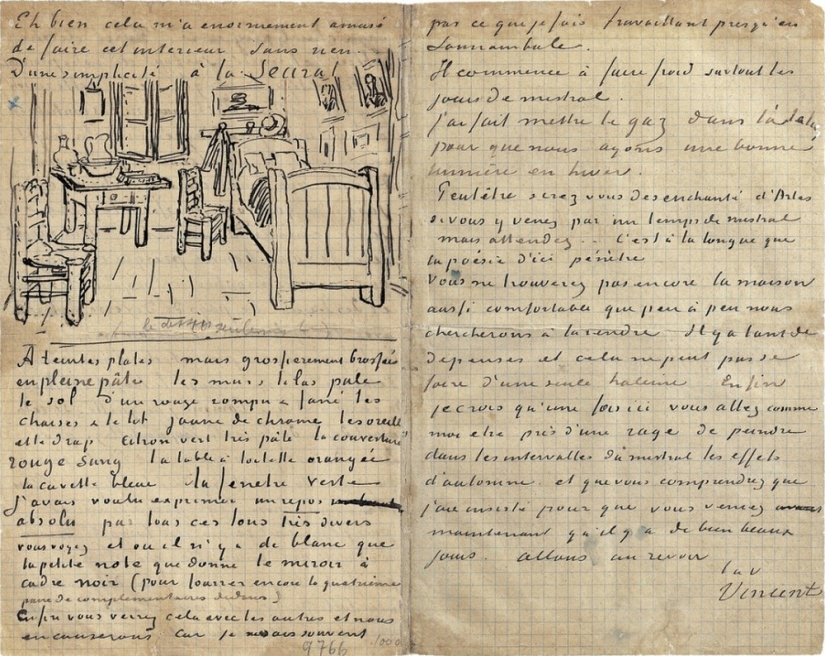 Eh bien cela m'a enormement amusé
de faire cet interieur sans rien.
D'une simplicité à la Seurat
le dessin seulement
À teintes plates mais grossierement brossées
en pleine pâte les murs lilas pale
le sol d'un rouge rompu & fané les
chaises & le lit jaune de chrome les oreillers
et le drap citron vert très pâle la couverture
rouge sang la table à toilette orangée
la cuvette bleue la fenetre verte
J'avais voulu exprimer un repos
absolu par tous ces tons très divers
vous voyez et ou il n'y a de blanc que
la petite note que donne le miroir à
cadre noir (pour fourrer encore la quatrième
paire de complementaires dedans)
Enfin vous verrez cela avec les autres et nous
en causerons car je ne sais souvent
9766
pas ce que je fais travaillant presqu'en
somnambule.
Il commence à faire froid surtout les
jours de mistral.
J'ai fait mettre le gaz dans
pour que nous ayons une bonne
lumière en hiver.
Peutêtre serez vous desenchanté d'Arles
si vous y venez par un temps de mistral
mais attendez .. C'est à la longue que
la poësie d'ici pénètre
Vous ne trouverez pas encore la maison
aussi comfortable que peu à peu nous
chercherons à la rendre Il y a tant de
depenses et cela ne peut pas se
faire d'une seule haleine Enfin
je crois qu'une fois ici vous allez comme
moi etre pris d'une rage de peindre
dans les intervalles du mistral les effets
d'automne. et que vous comprendrez que
j'aie insisté pour que vous venez
maintenant qu'il y a de bien beaux
jours. allons au revoir
t. à v.
Vincent